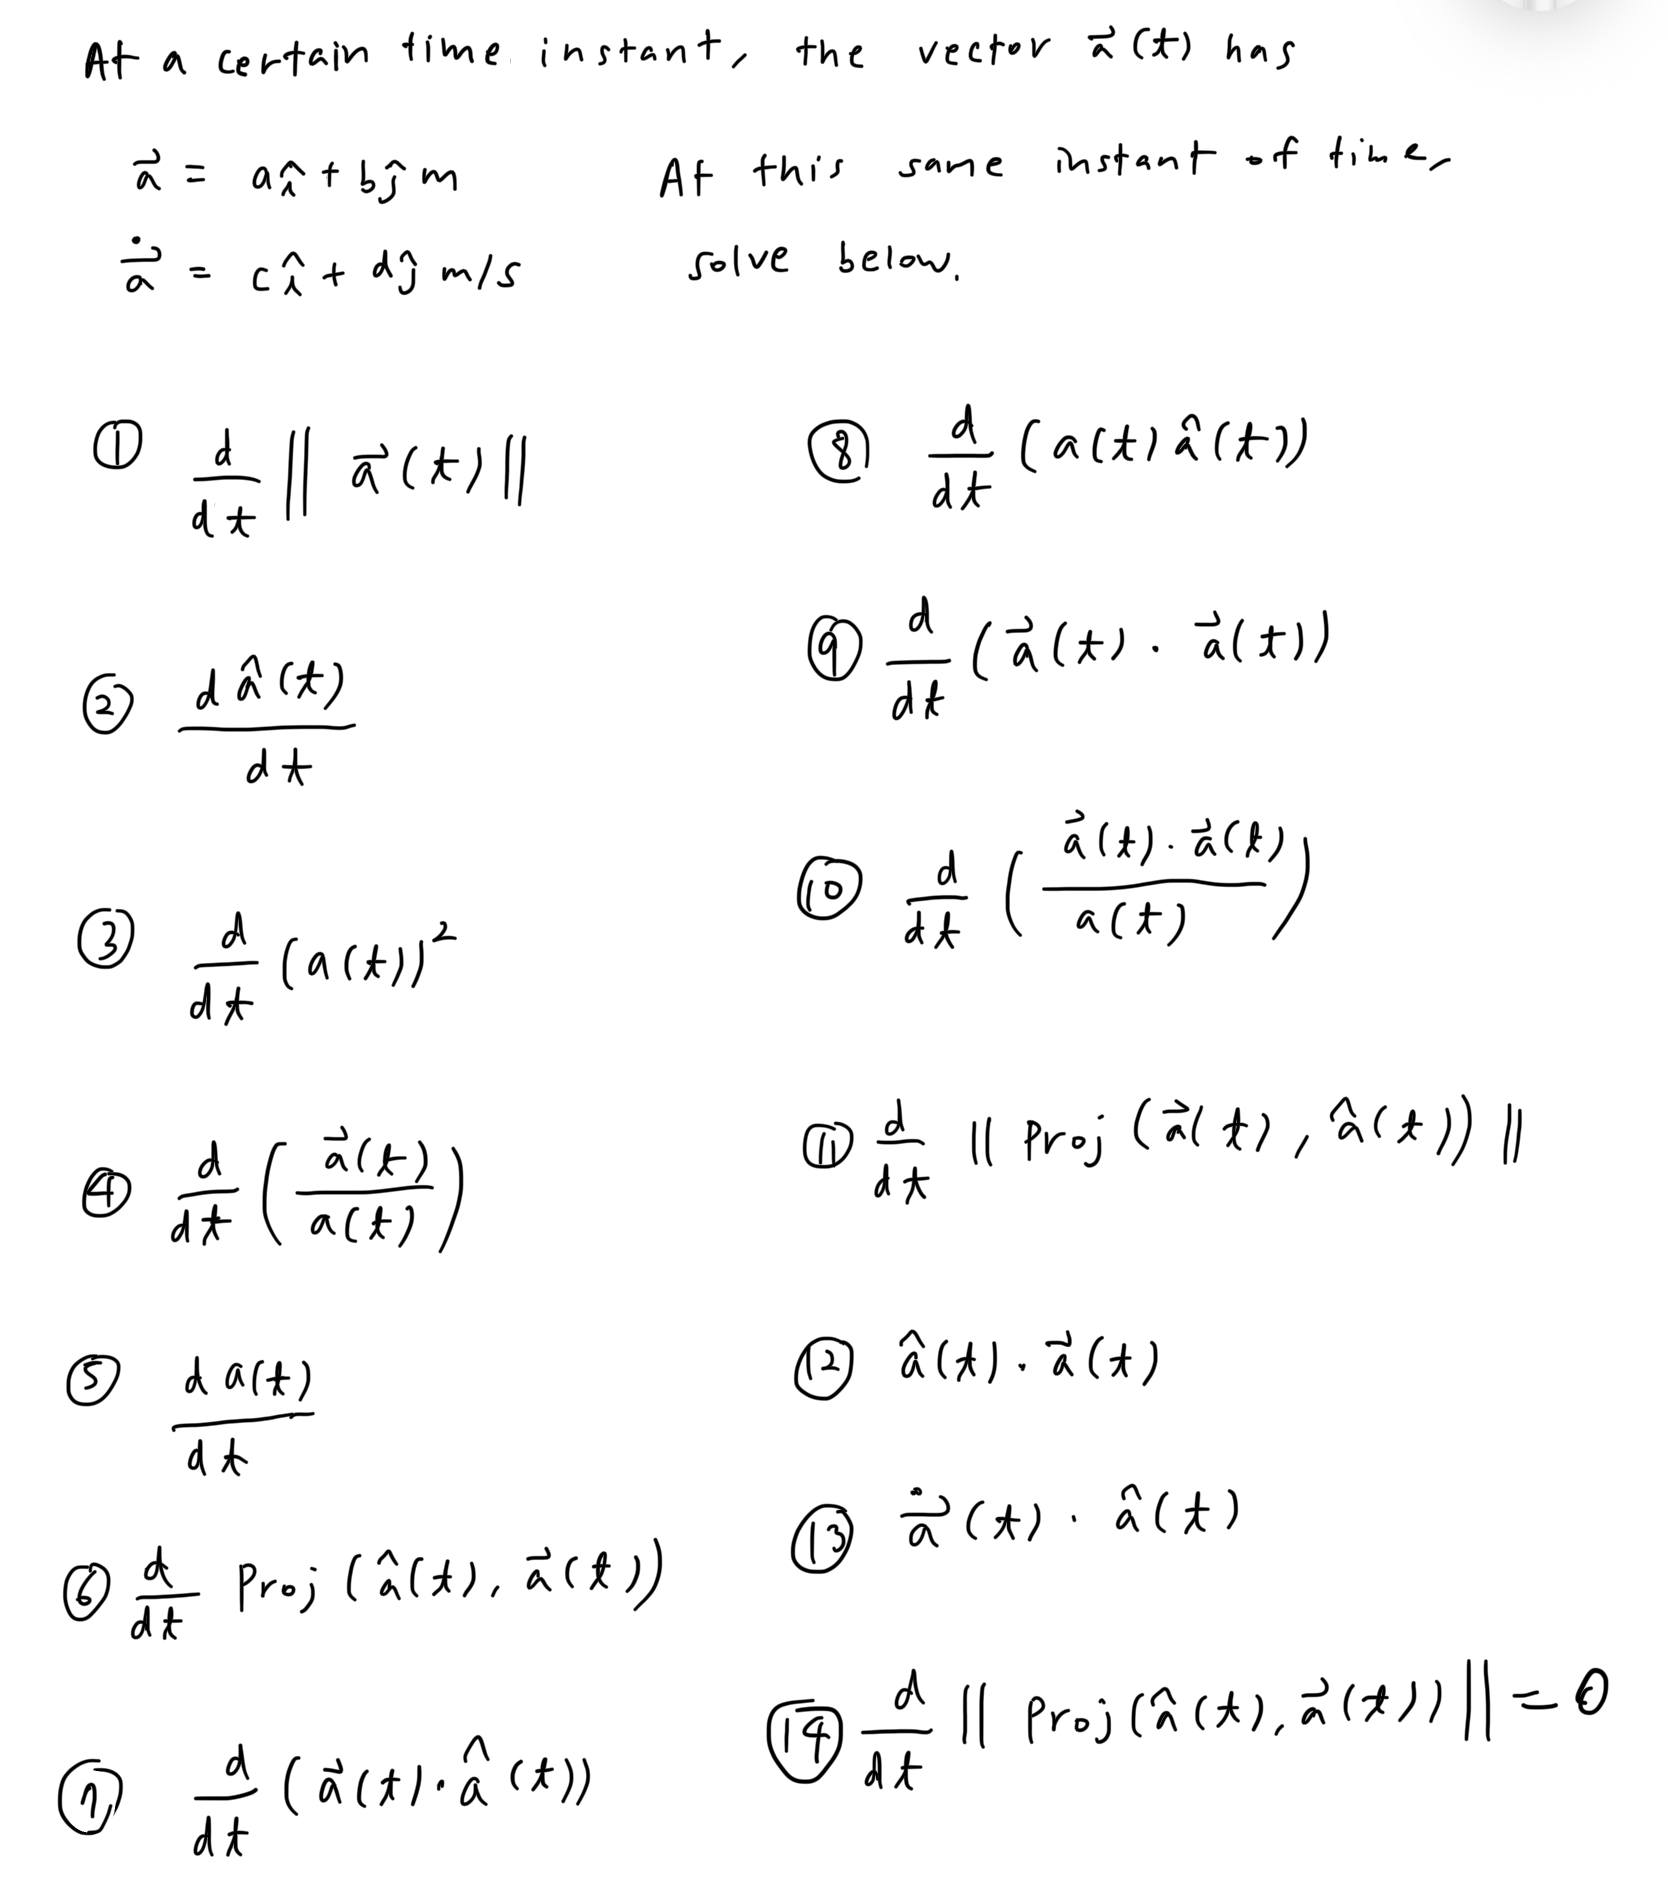 At a certain time instant, the vector a⃗(t) has
a⃗ = aî + bĵ m
At this same instant of time,
ȧ⃗ = cî + dĵ m/s
solve below.
① d/dt ‖ a⃗(t) ‖
② d â(t) / dt
③ d/dt (a(t))²
④ d/dt ( a⃗(t) / a(t) )
⑤ d a(t) / dt
⑥ d/dt Proj (â(t), a⃗(t))
⑦ d/dt (a⃗(t) · â(t))
⑧ d/dt (a(t) â(t))
⑨ d/dt (a⃗(t) · a⃗(t))
⑩ d/dt ( a⃗(t) · a⃗(t) / a(t) )
⑪ d/dt ‖ Proj (a⃗(t), â(t)) ‖
⑫ â(t) · a⃗(t)
⑬ ȧ⃗(t) · â(t)
⑭ d/dt ‖ Proj (â(t), a⃗(t)) ‖ = 0